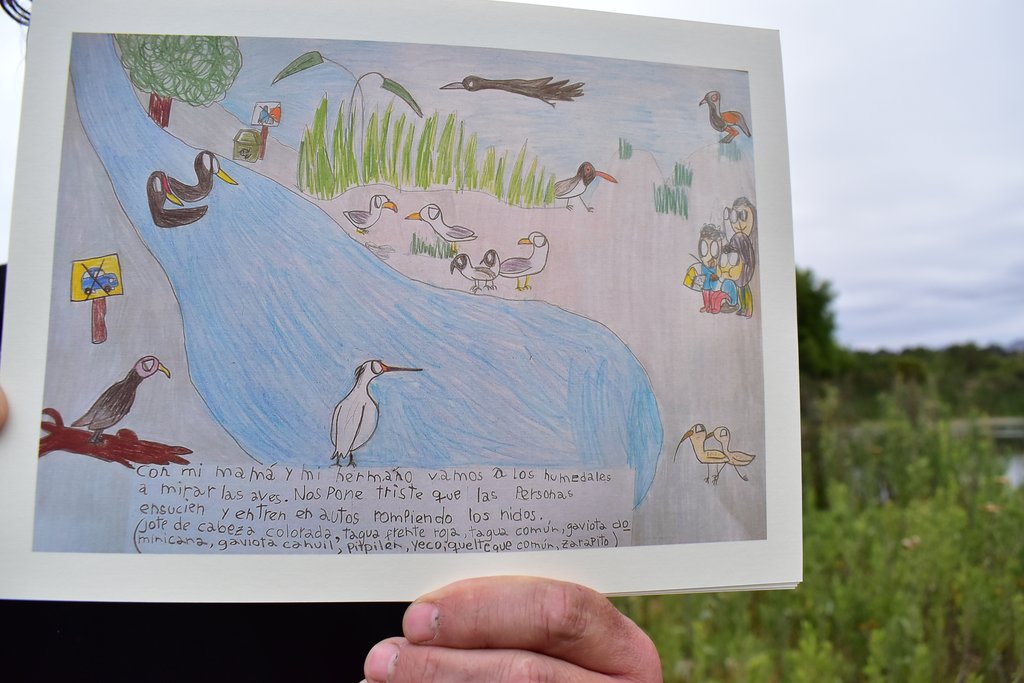 con mi mamá y mi hermano vamos a los humedales
a mirar las aves. Nos Pone triste que las Personas
ensucien y entren en autos rompiendo los nidos.
(jote de cabeza colorada, tagua frente roja, tagua común, gaviota do
minicana, gaviota cahuil, pitpilén, yeco, queltegue común, zarapito)